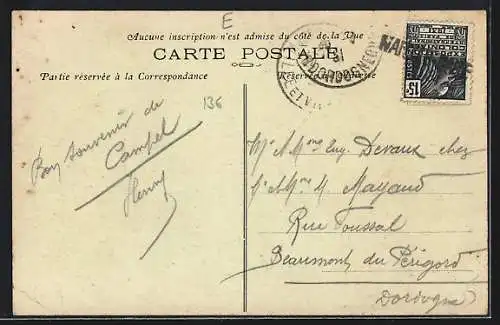 E
Aucune inscription n'est admise du côté de la Vue
CARTE POSTALE
Partie réservée à la Correspondance
Réservée
136
31
15c
POSTES
Bon souvenir de
Campel
Henry
Mr & Mme Eug. Devaux chez
Mr & Mme M Mayaud
Rue Foussal
Beaumont du Périgord
Dordogne